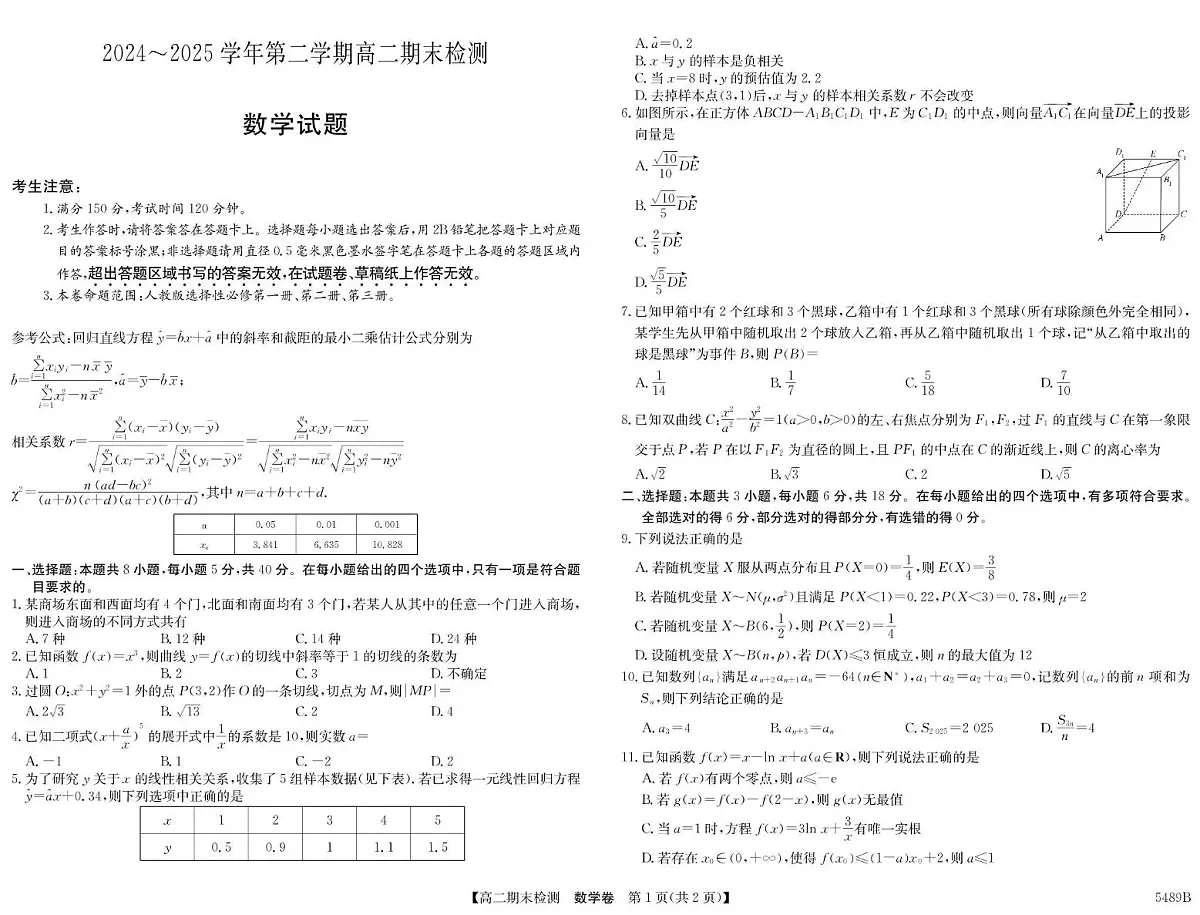 2024～2025 学年第二学期高二期末检测
数学试题
考生注意：
1. 满分 150 分，考试时间 120 分钟。
2. 考生作答时，请将答案答在答题卡上。选择题每小题选出答案后，用 2B 铅笔把答题卡上对应题
目的答案标号涂黑；非选择题请用直径 0.5 毫米黑色墨水签字笔在答题卡上各题的答题区域内
作答，超出答题区域书写的答案无效，在试题卷、草稿纸上作答无效。
3. 本卷命题范围：人教版选择性必修第一册、第二册、第三册。
参考公式：回归直线方程 ŷ=b̂x+â 中的斜率和截距的最小二乘估计公式分别为
b̂=(∑_{i=1}^{n}x_i y_i−n x̄ ȳ)/(∑_{i=1}^{n}x_i²−n x̄²), â=ȳ−b̂x̄；
相关系数 r=∑_{i=1}^{n}(x_i−x̄)(y_i−ȳ)/(√(∑_{i=1}^{n}(x_i−x̄)²)√(∑_{i=1}^{n}(y_i−ȳ)²))=(∑_{i=1}^{n}x_i y_i−nx̄ȳ)/(√(∑_{i=1}^{n}x_i²−nx̄²)√(∑_{i=1}^{n}y_i²−nȳ²))
χ²=n(ad−bc)²/((a+b)(c+d)(a+c)(b+d)), 其中 n=a+b+c+d.
α 0.05 0.01 0.001
x_α 3.841 6.635 10.828
一、选择题：本题共 8 小题，每小题 5 分，共 40 分。在每小题给出的四个选项中，只有一项是符合题
目要求的。
1. 某商场东面和西面均有 4 个门，北面和南面均有 3 个门，若某人从其中的任意一个门进入商场，
则进入商场的不同方式共有
A. 7 种 B. 12 种 C. 14 种 D. 24 种
2. 已知函数 f(x)=x³，则曲线 y=f(x)的切线中斜率等于 1 的切线的条数为
A. 1 B. 2 C. 3 D. 不确定
3. 过圆 O：x²+y²=1 外的点 P(3,2)作 O 的一条切线，切点为 M，则|MP|=
A. 2√3 B. √13 C. 2 D. 4
4. 已知二项式(x+a/x)⁵ 的展开式中 1/x 的系数是 10，则实数 a=
A. −1 B. 1 C. −2 D. 2
5. 为了研究 y 关于 x 的线性相关关系，收集了 5 组样本数据(见下表)，若已求得一元线性回归方程
ŷ=âx+0.34，则下列选项中正确的是
x 1 2 3 4 5
y 0.5 0.9 1 1.1 1.5
A. â=0.2
B. x 与 y 的样本是负相关
C. 当 x=8 时，y 的预估值为 2.2
D. 去掉样本点(3,1)后，x 与 y 的样本相关系数 r 不会改变
6. 如图所示，在正方体 ABCD−A₁B₁C₁D₁ 中，E 为 C₁D₁ 的中点，则向量A₁C₁→在向量DE→上的投影
向量是
A. (√10/10)DE→
B. (√10/5)DE→
C. (2/5)DE→
D. (√5/5)DE→
D₁ E C₁
A₁ B₁
D C
A B
7. 已知甲箱中有 2 个红球和 3 个黑球，乙箱中有 1 个红球和 3 个黑球(所有球除颜色外完全相同)，
某学生先从甲箱中随机取出 2 个球放入乙箱，再从乙箱中随机取出 1 个球，记“从乙箱中取出的
球是黑球”为事件 B，则 P(B)=
A. 1/14 B. 1/7 C. 5/18 D. 7/10
8. 已知双曲线 C：x²/a²−y²/b²=1(a>0,b>0)的左、右焦点分别为 F₁,F₂，过 F₁ 的直线与 C 在第一象限
交于点 P，若 P 在以 F₁F₂ 为直径的圆上，且 PF₁ 的中点在 C 的渐近线上，则 C 的离心率为
A. √2 B. √3 C. 2 D. √5
二、选择题：本题共 3 小题，每小题 6 分，共 18 分。在每小题给出的四个选项中，有多项符合要求。
全部选对的得 6 分，部分选对的得部分分，有选错的得 0 分。
9. 下列说法正确的是
A. 若随机变量 X 服从两点分布且 P(X=0)=1/4，则 E(X)=3/8
B. 若随机变量 X～N(μ,σ²)且满足 P(X<1)=0.22,P(X<3)=0.78，则 μ=2
C. 若随机变量 X～B(6,1/2)，则 P(X=2)=1/4
D. 设随机变量 X～B(n,p)，若 D(X)≤3 恒成立，则 n 的最大值为 12
10. 已知数列{aₙ}满足 aₙ₊₂aₙ₊₁aₙ=−64(n∈N*)，a₁+a₂=a₂+a₃=0，记数列{aₙ}的前 n 项和为
Sₙ，则下列结论正确的是
A. a₃=4 B. aₙ₊₃=aₙ C. S₂ ₀₂₅=2 025 D. S₃ₙ/n=4
11. 已知函数 f(x)=x−ln x+a(a∈R)，则下列说法正确的是
A. 若 f(x)有两个零点，则 a≤−e
B. 若 g(x)=f(x)−f(2−x)，则 g(x)无最值
C. 当 a=1 时，方程 f(x)=3ln x+3/x 有唯一实根
D. 若存在 x₀∈(0,+∞)，使得 f(x₀)≤(1−a)x₀+2，则 a≤1
【高二期末检测 数学卷 第 1 页(共 2 页)】
5489B